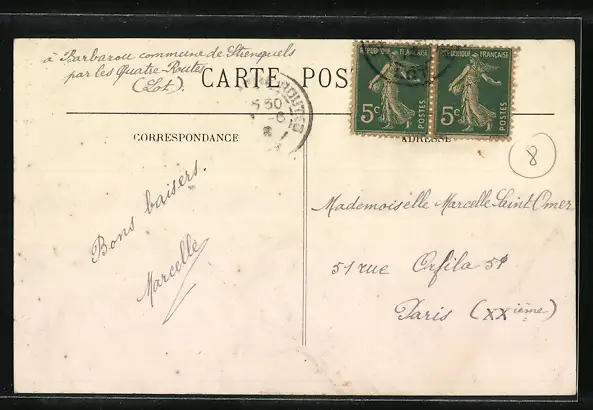 à Barbarou commune de Strenquels
par les Quatre-Routes
(Lot).
CARTE POS
RÉPUBLIQUE FRANÇAISE
5c
POSTES
RÉPUBLIQUE FRANÇAISE
5c
POSTES
LOT
5 50
CORRESPONDANCE
ADRESSE
8
Bons baisers.
Marcelle
Mademoiselle Marcelle Saint Omer
51 rue Orfila 51
Paris (XXième)